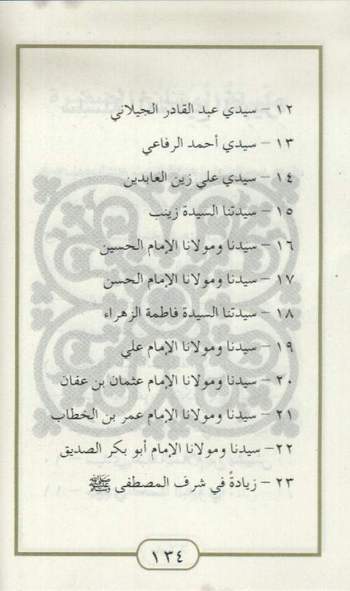 ١٢ - سيدي عبد القادر الجيلاني
١٣ - سيدي أحمد الرفاعي
١٤ - سيدي علي زين العابدين
١٥ - سيدتنا السيدة زينب
١٦ - سيدنا ومولانا الإمام الحسين
١٧ - سيدنا ومولانا الإمام الحسن
١٨ - سيدتنا السيدة فاطمة الزهراء
١٩ - سيدنا ومولانا الإمام علي
٢٠ - سيدنا ومولانا الإمام عثمان بن عفان
٢١ - سيدنا ومولانا الإمام عمر بن الخطاب
٢٢ - سيدنا ومولانا الإمام أبو بكر الصديق
٢٣ - زيادةً في شرف المصطفى ﷺ
١٣٤